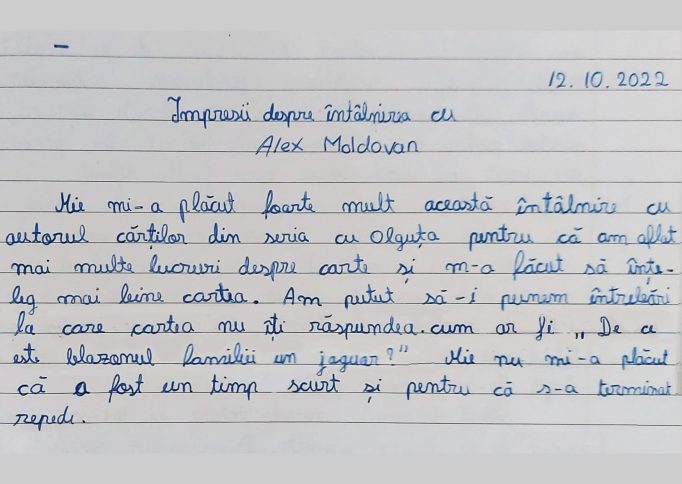 12.10.2022
Impresii despre întâlnirea cu
Alex Moldovan
Mie mi-a plăcut foarte mult această întâlnire cu
autorul cărților din seria cu Olguța pentru că am aflat
mai multe lucruri despre carte și m-a făcut să înțe-
leg mai bine cartea. Am putut să-i punem întrebări
la care cartea nu îți răspundea.cum ar fi „De ce
este blazonul familiei un jaguar?" Mie nu mi-a plăcut
că a fost un timp scurt și pentru că s-a terminat
repede.